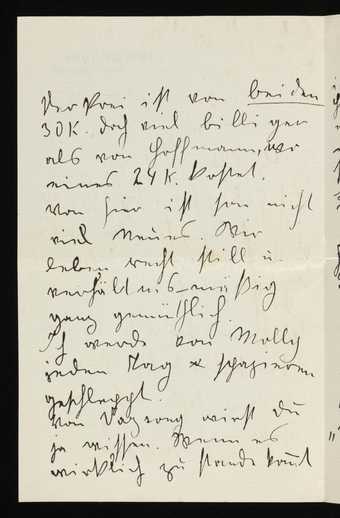 Der Prei ist von beiden
30 K. doch viel billiger
als von Hoffmann, wo
eines 24 K. kostet.
Von hier ist son nicht
viel Neues. Wir
leben recht still u.
verhältnis-mäßig
ganz gemüthlich.
Ich werde von Molly
jeden Tag spazieren
geschleppt.
Von wirst du
ja wissen. Wenn es
wirklich zu stande kommt